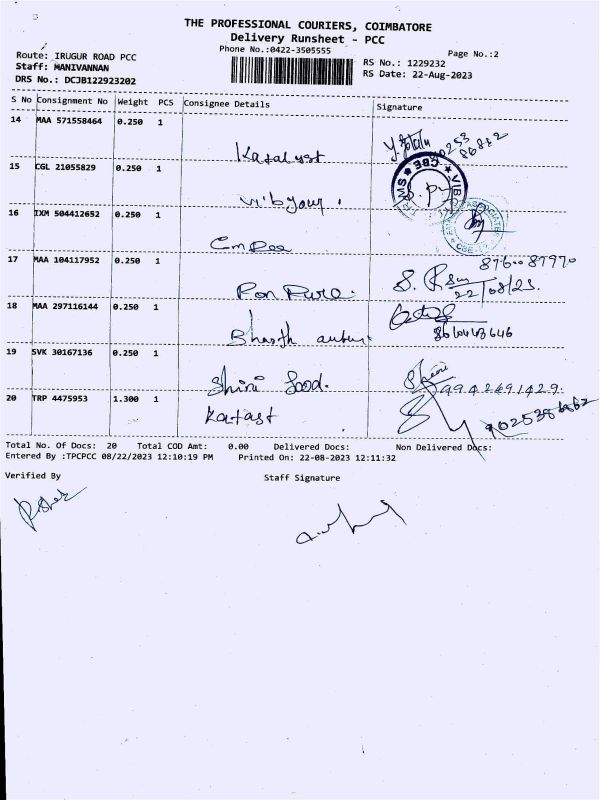 THE PROFESSIONAL COURIERS, COIMBATORE
Delivery Runsheet - PCC
Phone No.:0422-3505555
Page No.:2
Route: IRUGUR ROAD PCC
Staff: MANIVANNAN
DRS No.: DCJB122923202
RS No.: 1229232
RS Date: 22-Aug-2023
S No Consignment No Weight PCS Consignee Details Signature
14 MAA 571558464 0.250 1
15 CGL 21055829 0.250 1
Vibgyour.
16 IXM 504412652 0.250 1
17 MAA 104117952 0.250 1
Pon Pure.
22/08/23.
18 MAA 297116144 0.250 1
Bharth
19 SVK 30167136 0.250 1
Shini food.
9942691429.
20 TRP 4475953 1.300 1
Total No. Of Docs: 20 Total COD Amt: 0.00 Delivered Docs: Non Delivered Docs:
Entered By :TPCPCC 08/22/2023 12:10:19 PM Printed On: 22-08-2023 12:11:32
Verified By Staff Signature